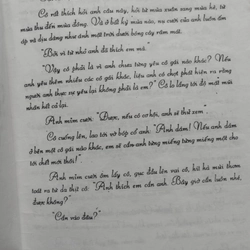 Cô rất thích hỏi anh câu này, hỏi từ mùa xuân sang mùa hè, từ
mùa thu đến mùa đông. Và ở bất kỳ mùa nào, nụ cười của anh luôn ấm
áp và dịu dàng như ánh mặt trời dưới bóng cây râm mát.
"Bởi vì từ nhỏ anh đã thích em mà."
"Vậy có phải là vì anh chưa từng yêu cô gái nào khác? Nếu anh
yêu thêm nhiều các cô gái khác, liệu anh có chợt phát hiện ra rằng
người anh thực sự yêu lại không phải là em?" Cô lo lắng tới độ mặt mũi
nhăn hết cả lại.
Anh mỉm cười: "Được, nếu có cơ hội, anh sẽ thử xem".
Cô cuống lên, lao tới vò bóp cổ anh: "Anh dám! Nếu anh dám
ở bên một cô gái nào khác, em sẽ cắn từng miếng từng miếng một cho
tới chết mới thôi!"
Anh mỉm cười ôm lấy cô, gục đầu lên vai cô, hít hà mùi thơm
toát ra từ da thịt cô: "Anh thích em cắn anh. Bây giờ cắn luôn nhé,
được không?"
"Cắn vào đâu?"